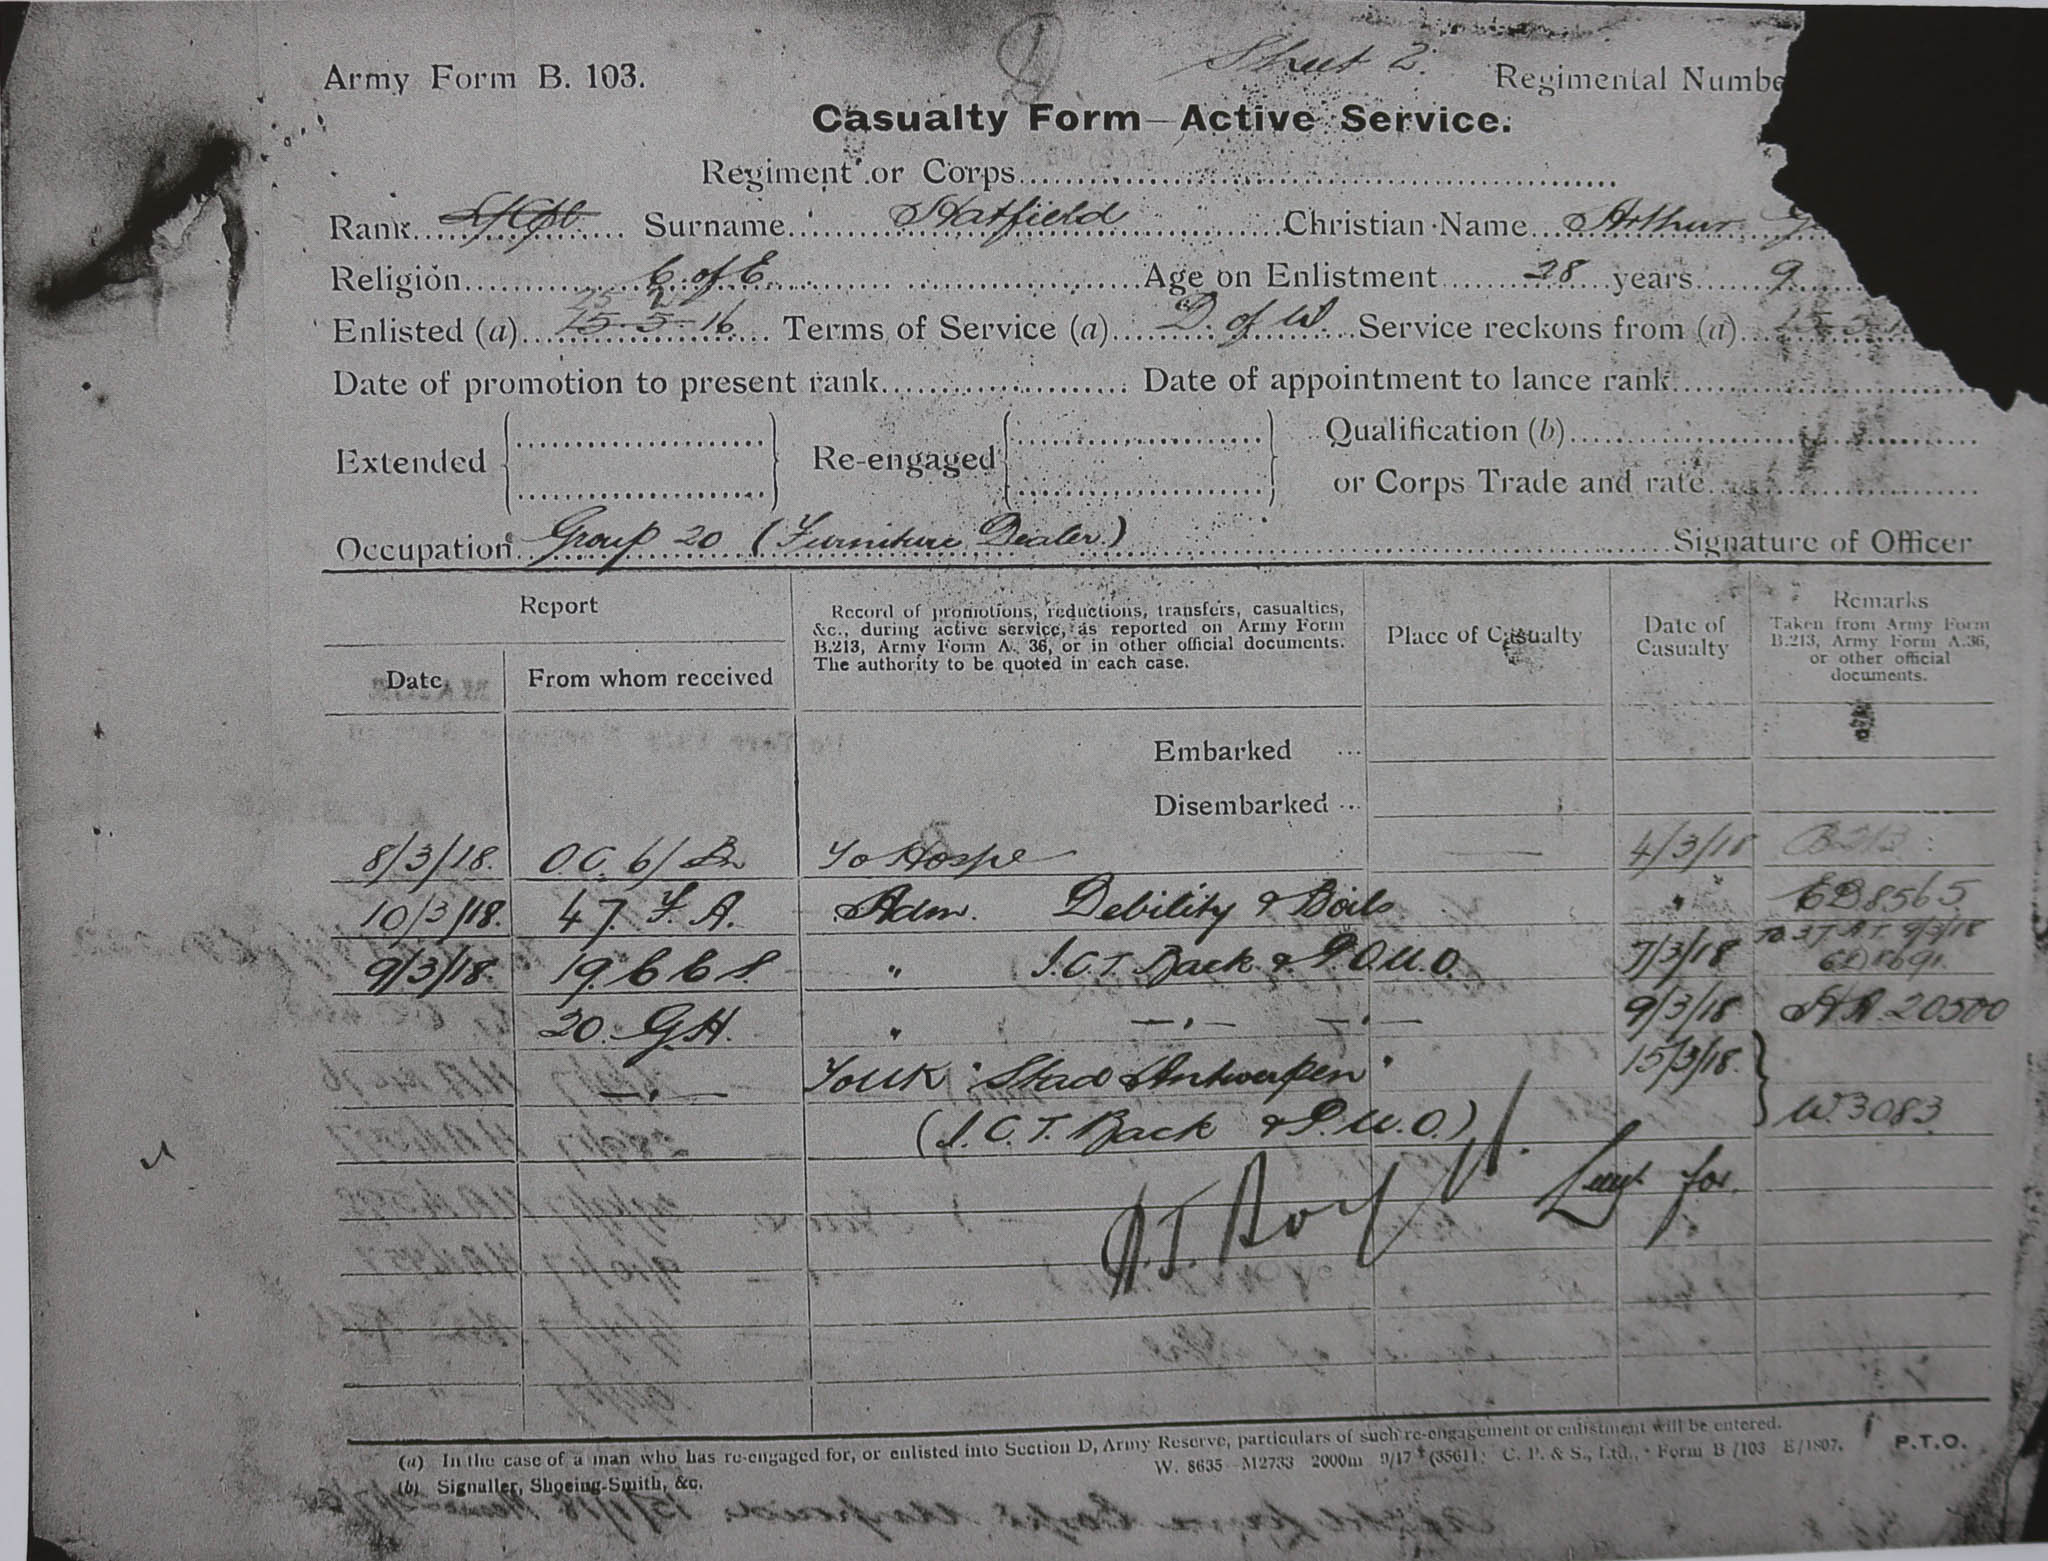 Sheet 2.
Army Form B. 103. Regimental Numbe
Casualty Form—Active Service.
Regiment or Corps
Rank L/Cpl Surname Hatfield Christian Name Arthur
Religion C of E Age on Enlistment 28 years 9
25 2
Enlisted (a) 15-5-16 Terms of Service (a) D. of W. Service reckons from (a) 15-5-1
Date of promotion to present rank Date of appointment to lance rank
Extended Re-engaged Qualification (b)
or Corps Trade and rate
Occupation Group 20 (Furniture Dealer) Signature of Officer
Report Record of promotions, reductions, transfers, casualties, &c., during active service, as reported on Army Form B.213, Army Form A. 36, or in other official documents. The authority to be quoted in each case. Place of Casualty Date of Casualty Remarks Taken from Army Form B.213, Army Form A.36, or other official documents.
Date From whom received
Embarked ...
Disembarked ...
8/3/18. O.C. 6/Bn To Hospl — 4/3/18 B213
10/3/18. 47. F. A. Adm. Debility & Boils " ED8565
9/3/18. 19. C C S " I.C.T. Back & P.U.O. 7/3/18 9/3/18
20. G.H. " —"— —"— 9/3/18 HA 20500
—"— To UK "Stad Antwerpen" 15/3/18.
(I.C.T. Back & P.U.O.) W.3083
Lieut for
(a) In the case of a man who has re-engaged for, or enlisted into Section D, Army Reserve, particulars of such re-engagement or enlistment will be entered. P.T.O.
(b) Signaller, Shoeing-Smith, &c. W. 8635—M2733 2000m 9/17 (35611) C. P. & S., Ltd., Form B/103 E/1807.